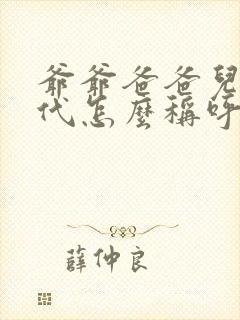 爺爺爸爸兒
代怎麼稱呼
薛仲良